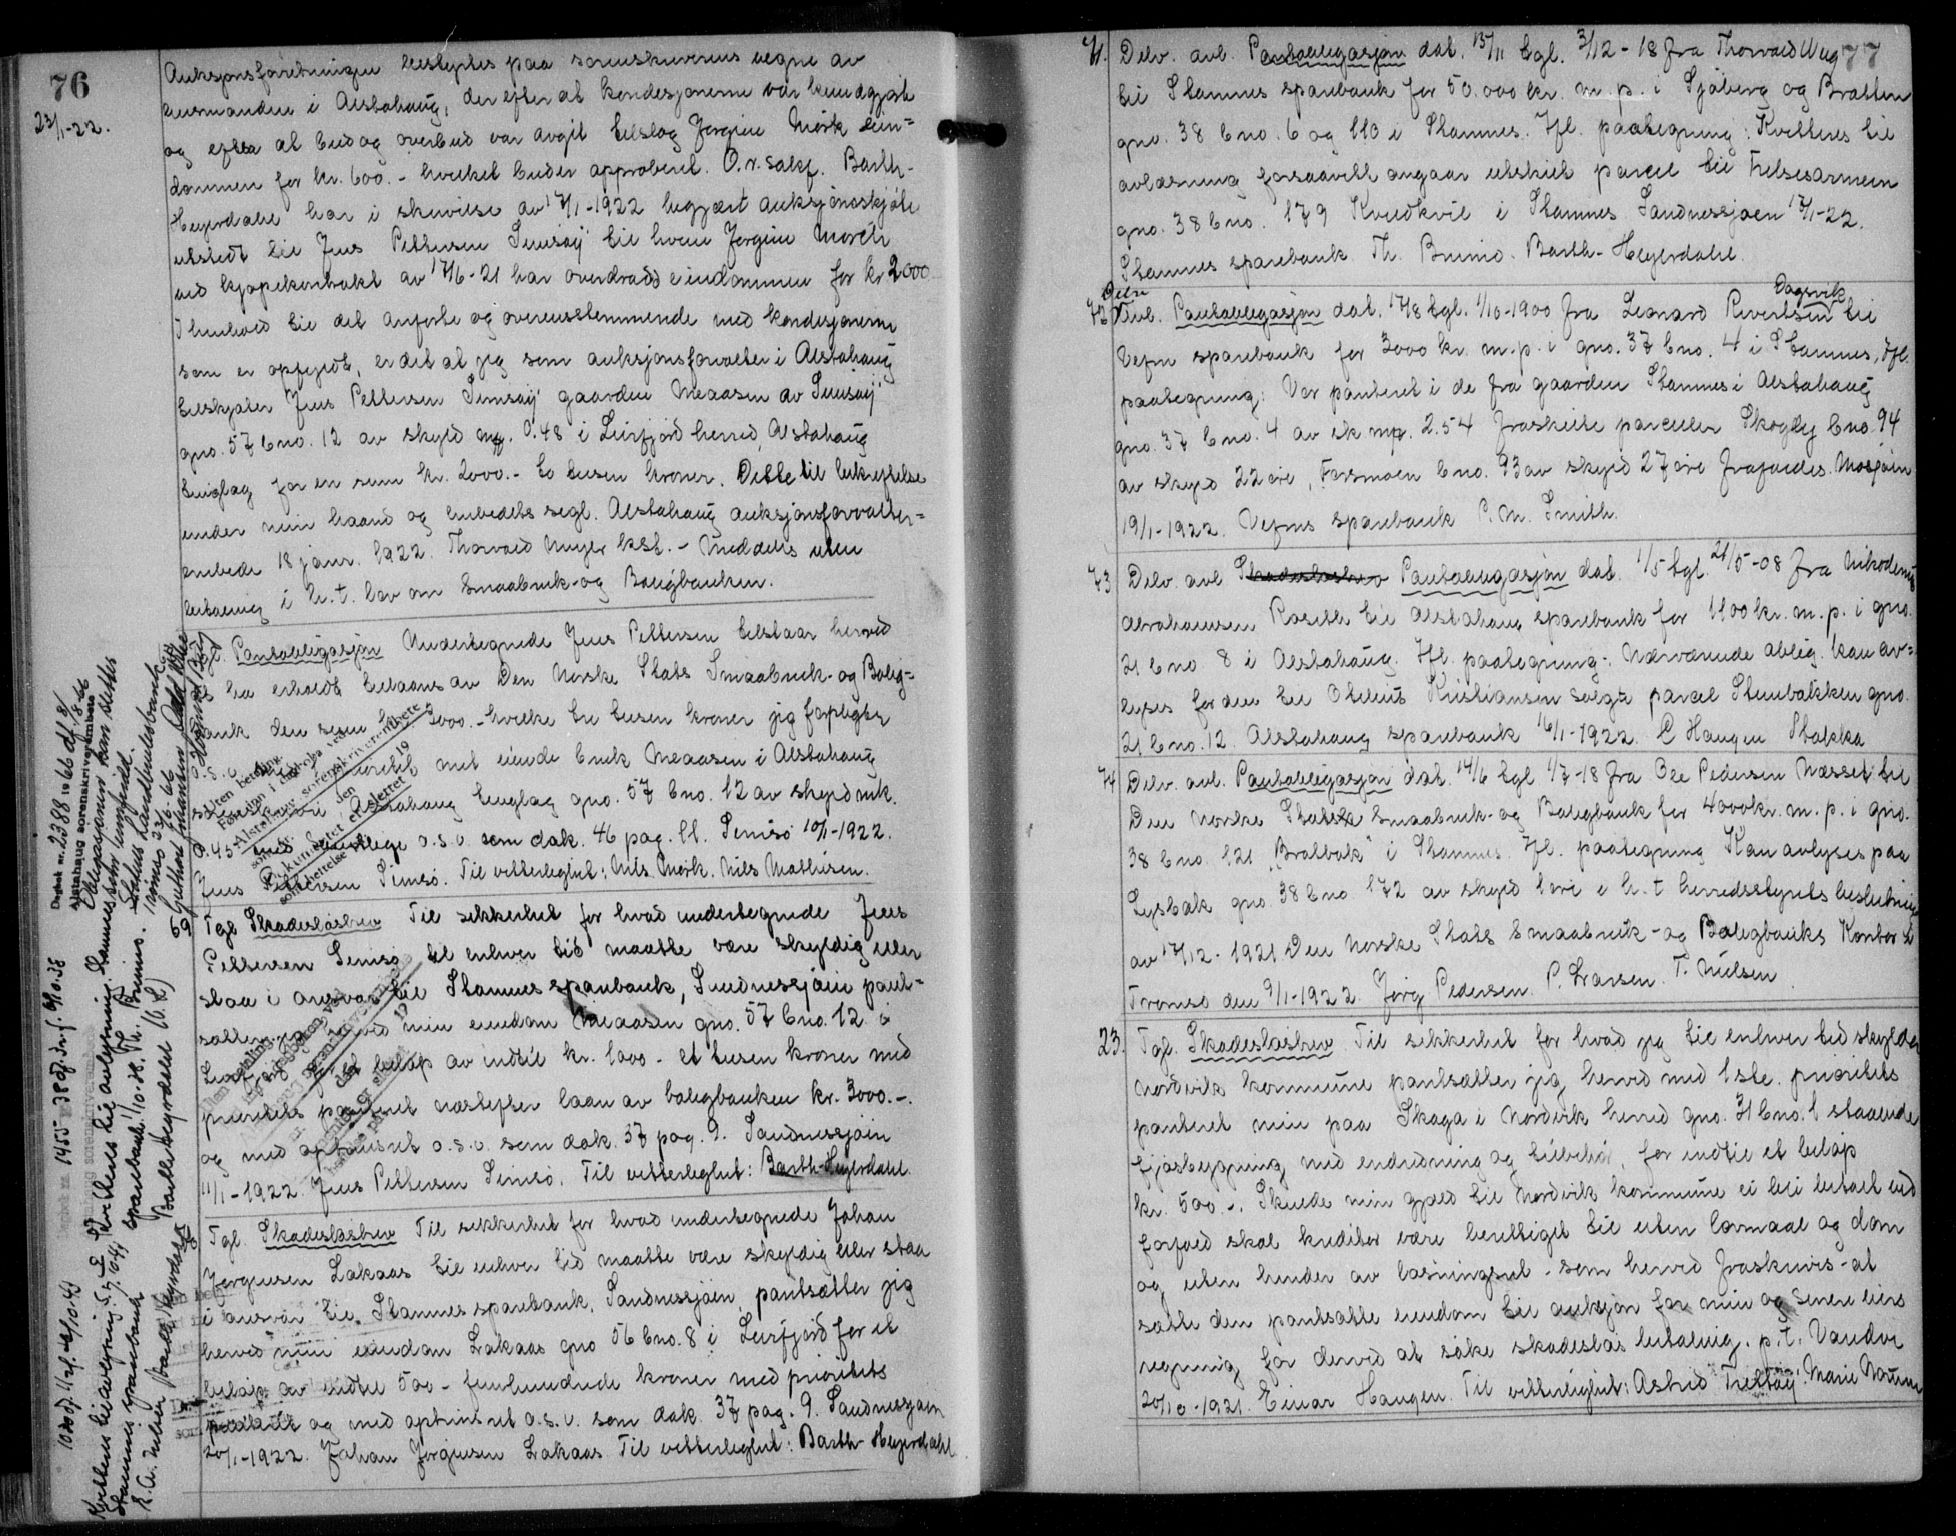 76
23/1-22.
Auksjonsforretningen bestyrtes paa sorenskriverens vegne av
lensmanden i Alstahaug, der efter at kondisjonerne var kundgjort
og efter at bud og overbud var avgit tilslog Jørgine Mørk eien=
dommen for kr. 600.- hvilket bud er approberet. O.r.sakf. Barth-
Heyerdahl har i skrivelse av 17/1-1922 begjært auksjonsskjøte
utstedt til Jens Pettersen Simsøy til hvem Jørgine Mørch
ved kjøpekontrakt av 17/6-21 har overdradd eiendommen for kr 2000
I henhold til det anførte og overensstemmende med kondisjonerne
som er opfyldt, er det at jeg som auksjonsforvalter i Alstahaug
tilskjøter Jens Pettersen Simsøy gaarden Meaasen av Simsøy
gno. 57 bno. 12 av skyld mrk. 0.48 i Leirfjord herred, Alstahaug
tinglag for en sum kr. 2000.- to tusen kroner. Dette til bekræftelse
under min haand og embedets segl. Alstahaug auksjonsforvalter=
embede 18 janr. 1922. Thorvald Meyer kst. - Meddeles uten
betaling i h.t. lov om Smaabruk- og Boligbanken.
Tgl. Pantobligasjon Undertegnede Jens Pettersen tilstaar herved
at ha erholdt tillaans av Den Norske Stats Smaabruk- og Bolig=
bank den sum kr. 3000.- hvilke tre tusen kroner jeg forpligter
o.s.v. 1ste prioritet mit eiende bruk Meaasen i Alstahaug
sorenskriveri, Alstahaug tinglag gno. 57 bno. 12 av skyld mk.
0.45 med herlige o.s.v. som dok. 46 pag. 11. Simsø 10/1-1922.
Jens Pettersen Simsø. Til vitterlighet: Nils Mørk. Nils Mathisen.
69 Tgl Skadesløsbrev Til sikkerhet for hvad undertegnede Jens
Pettersen Simsø til enhver tid maatte være skyldig eller
staa i ansvar til Stamnes sparebank, Sandnessjøen pant-
sætter jeg herved min eiendom Meaasen gno. 57 bno. 12 i
Leirfjord for et beløp av indtil kr. 1000.- et tusen kroner med
prioritets panteret næstefter laan av boligbanken kr. 3000.-.
og med opttrinsret o.s.v. som dok. 37 pag. 9. Sandnessjøen
11/1-1922. Jens Pettersen Simsø. Til vitterlighet: Barth-Heyerdahl.
Tgl. Skadesløsbrev Til sikkerhet for hvad undertegnede Johan
Jørgensen Lakaas til enhver tid maatte være skyldig eller staa
i ansvar til Stamnes sparebank, Sandnessjøen, pantsætter jeg
herved min eiendom Lakaas gno 56 bno. 8 i Leirfjord for et
beløp av indtil 500.- femhundrede kroner med prioritets
panteret og med optrinsret o.s.v. som dok. 37 pag. 9. Sandnessjøen
20/1-1922. Johan Jørgensen Lakaas. Til vitterlighet: Barth-Heyerdahl
Dagbok nr. 2388 1966 df 8/8-66
Alstahaug sorenskriverembete
77
71. Delv. avl. Pantobligasjon dat. 15/11 tgl. 3/12-18 fra Thorvald Aug
til Stamnes sparebank for 50.000 kr. m.p. i Sjøberg og Bratten
gno. 38 bno. 6 og 110 i Stamnes. Ifl. paategning: Kvitteres til
avlæsning forsaavidt angaar utskilt parcel til Frelsesarmeen
gno. 38 bno. 179 Kveldkvil i Stamnes Sandnessjøen 17/1-22.
Stamnes sparebank Th. Brunio. Barth-Heyerdahl.
72 Delv avl. Pantobligasjon dat. 17/8 tgl. 1/10-1900 fra Leonard Sivertsen Dagsvik til
Vefsn sparebank for 3000 kr. m.p. i gno. 37 bno. 4 i Stamnes, Ifl.
paategning: Vor panteret i de fra gaarden Stamnes i Alstahaug
gno. 37 bno. 4 av sk mrk. 2.54 fraskilte parceller Skogly bno. 94
av skyld 22 øre, Formoen bno. 93 av skyld 27 øre frafaldes. Mosjøen
19/1-1922. Vefsns sparebank P.M. Smith.
73 Delv. avl Skadesløsbrev Pantobligasjon dat. 1/5 tgl. 21/5-08 fra Nikodemus
Abrahamsen Roseth til Alstahaug sparebank for 1100 kr. m.p. i gno.
21 bno 8 i Alstahaug. Ifl. paategning: Nærværende oblig. kan av=
lyses for den til Obelius Kristiansen solgte parcel Stenbakken gno.
21 bno. 12. Alstahaug sparebank 16/1-1922. C Haugen Stokka
74 Delv. avl. Pantobligasjon dat. 14/6 tgl 1/7-18 fra Ole Pedersen Næsset til
Den norske Stats Smaabruk- og Boligbank for 4000 kr. m.p. i gno.
38 bno 121 "Bratbak" i Stamnes. Ifl. paategning Kan avlyses paa
Lysbak gno. 38 bno 172 av skyld 1 øre i h.t herredsstyrets beslutning
av 17/12-1921 Den Norske Stats Smaabruk- og Boligbanks Kontor i
Tromsø den 9/1-1922. Jørg Pedersen. P. Larsen. T. Nielsen
23. Tgl. Skadesløsbrev Til sikkerhet for hvad jeg til enhver tid skylder
Nordvik kommune pantsætter jeg herved med 1ste. prioritets
panteret min paa Skaga i Nordvik herred gno. 31 bno. 1 staaende
fjøsbygning med indredning og tilbehør, for indtil et beløp
kr. 500.-. Skulde min gjæld til Nordvik kommune ei bli betalt ved
forfald skal kreditor være berettiget til uten lovmaal og dom
og uten hinder av løsningsret - som herved fraskrives - at
sætte den pantsatte eiendom til auksjon for min og senere eiers
regning for derved at søke skadesløs betaling. p.t. Vandve
20/10-1921. Einar Haugen. Til vitterlighet: Astrid Marie